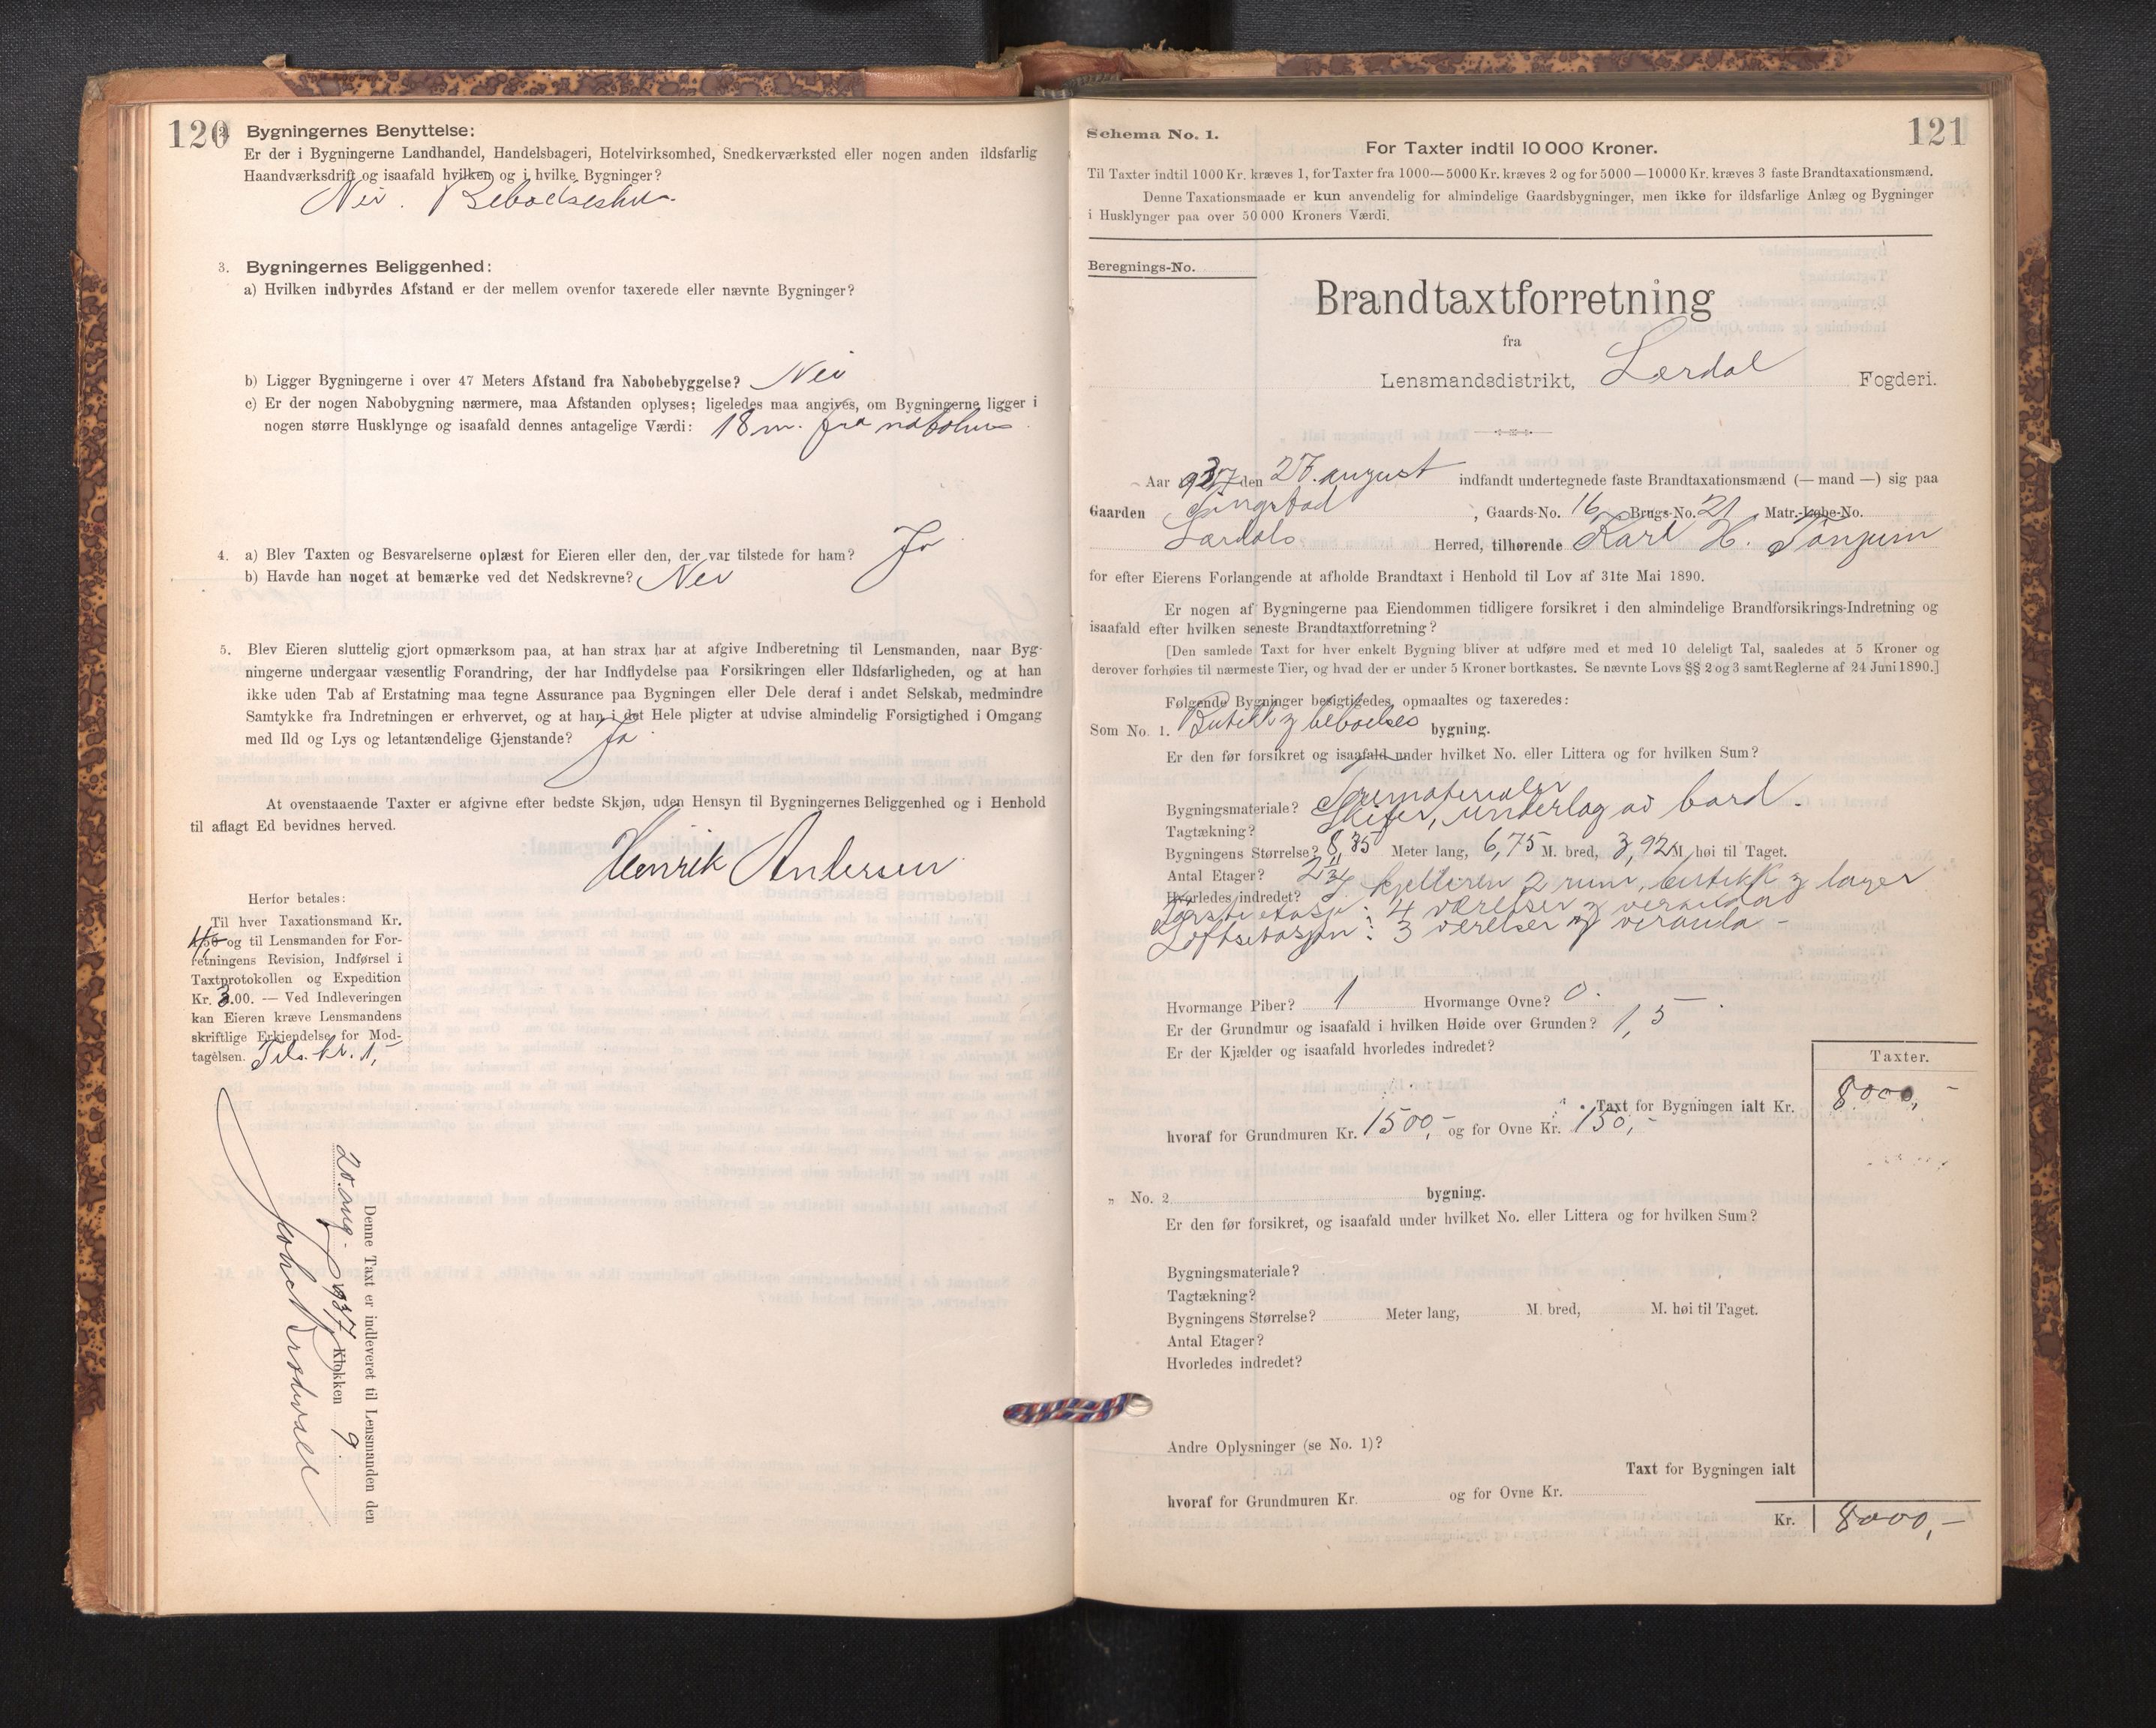 120
2. Bygningernes Benyttelse:
Er der i Bygningerne Landhandel, Handelsbageri, Hotelvirksomhed, Snedkerværksted eller nogen anden ildsfarlig
Haandværksdrift og isaafald hvilken og i hvilke Bygninger?
Nei. Beboelseshus.
3. Bygningernes Beliggenhed:
a) Hvilken indbyrdes Afstand er der mellem ovenfor taxerede eller nævnte Bygninger?
b) Ligger Bygningerne i over 47 Meters Afstand fra Nabobebyggelse? Nei
c) Er der nogen Nabobygning nærmere, maa Afstanden oplyses; ligeledes maa angives, om Bygningerne ligger i
nogen større Husklynge og isaafald dennes antagelige Værdi: 18 m. fra nabohus.
4. a) Blev Taxten og Besvarelserne oplæst for Eieren eller den, der var tilstede for ham? Ja
b) Havde han noget at bemærke ved det Nedskrevne? Nei
5. Blev Eieren sluttelig gjort opmærksom paa, at han strax har at afgive Indberetning til Lensmanden, naar Byg-
ningerne undergaar væsentlig Forandring, der har Indflydelse paa Forsikringen eller Ildsfarligheden, og at han
ikke uden Tab af Erstatning maa tegne Assurance paa Bygningen eller Dele deraf i andet Selskab, medmindre
Samtykke fra Indretningen er erhvervet, og at han i det Hele pligter at udvise almindelig Forsigtighed i Omgang
med Ild og Lys og letantændelige Gjenstande? Ja
At ovenstaaende Taxter er afgivne efter bedste Skjøn, uden Hensyn til Bygningernes Beliggenhed og i Henhold
til aflagt Ed bevidnes herved.
Henrik Andersen
Herfor betales:
Til hver Taxationsmand Kr.
4,- og til Lensmanden for For-
retningens Revision, Indførsel i
Taxtprotokollen og Expedition
Kr. 3.00. — Ved Indleveringen
kan Eieren kræve Lensmandens
skriftlige Erkjendelse for Mod-
tagelsen. Tils. kr. 1,
Denne Taxt er indleveret til Lensmanden den
20. aug. 1937 Klokken 9.
121
Schema No. 1.
For Taxter indtil 10 000 Kroner.
Til Taxter indtil 1000 Kr. kræves 1, for Taxter fra 1000—5000 Kr. kræves 2 og for 5000—10000 Kr. kræves 3 faste Brandtaxationsmænd.
Denne Taxationsmaade er kun anvendelig for almindelige Gaardsbygninger, men ikke for ildsfarlige Anlæg og Bygninger
i Husklynger paa over 50 000 Kroners Værdi.
Beregnings-No.
Brandtaxtforretning
fra
Lensmandsdistrikt, Lærdal Fogderi.
Aar 937 den 27. august indfandt undertegnede faste Brandtaxationsmænd (— mand —) sig paa
Gaarden , Gaards-No. 16, Brugs-No. 21 Matr.-Løbe-No.
Lærdals Herred, tilhørende Karl H. Tønjum
for efter Eierens Forlangende at afholde Brandtaxt i Henhold til Lov af 31te Mai 1890.
Er nogen af Bygningerne paa Eiendommen tidligere forsikret i den almindelige Brandforsikrings-Indretning og
isaafald efter hvilken seneste Brandtaxtforretning?
[Den samlede Taxt for hver enkelt Bygning bliver at udføre med et med 10 deleligt Tal, saaledes at 5 Kroner og
derover forhøies til nærmeste Tier, og hvad der er under 5 Kroner bortkastes. Se nævnte Lovs §§ 2 og 3 samt Reglerne af 24 Juni 1890.]
Følgende Bygninger besigtigedes, opmaaltes og taxeredes:
Som No. 1. Butikk og beboelses bygning.
Er den før forsikret og isaafald under hvilket No. eller Littera og for hvilken Sum?
Bygningsmateriale? Trematerialer
Tagtækning? Skifer, underlag av bord.
Bygningens Størrelse? 8,35 Meter lang, 6,75 M. bred, 3,92 M. høi til Taget.
Antal Etager? 2
Hvorledes indredet? I kjelleren 2 rum, butikk og lager
Første etasje: 4 værelser og veranda
Loftsetasjen: 3 værelser og veranda -
Hvormange Piber? 1 Hvormange Ovne? 0.
Er der Grundmur og isaafald i hvilken Høide over Grunden? 1,5
Er der Kjælder og isaafald hvorledes indredet?
Taxter.
Taxt for Bygningen ialt Kr. 8000,-
hvoraf for Grundmuren Kr. 1500,- og for Ovne Kr. 150,-
„ No. 2 bygning.
Er den før forsikret, og isaafald under hvilket No. eller Littera og for hvilken Sum?
Bygningsmateriale?
Tagtækning?
Bygningens Størrelse? Meter lang, M. bred, M. høi til Taget.
Antal Etager?
Hvorledes indredet?
Andre Oplysninger (se No. 1)?
Taxt for Bygningen ialt
hvoraf for Grundmuren Kr. og for Ovne Kr.
Kr. 8000,-